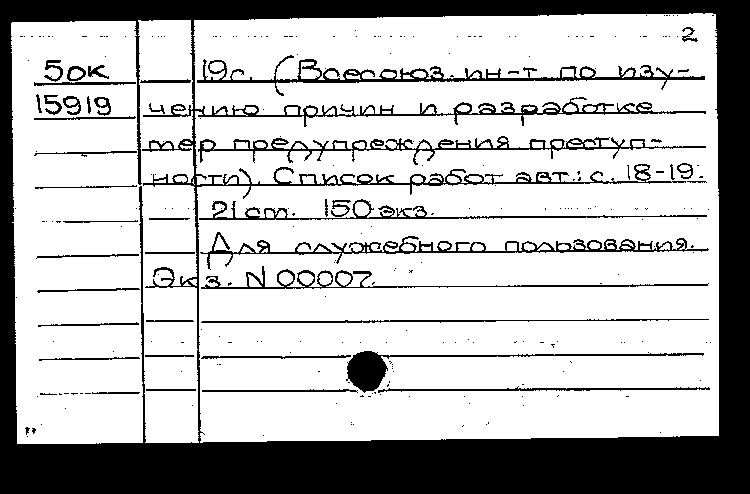 2
5ок 19с. (Всесоюз. ин-т по изу-
15919 чению причин и разработке
мер предупреждения преступ-
ности). Список работ авт.: с. 18-19.
21 см. 150 экз.
Для служебного пользования.
Экз. N 00007.